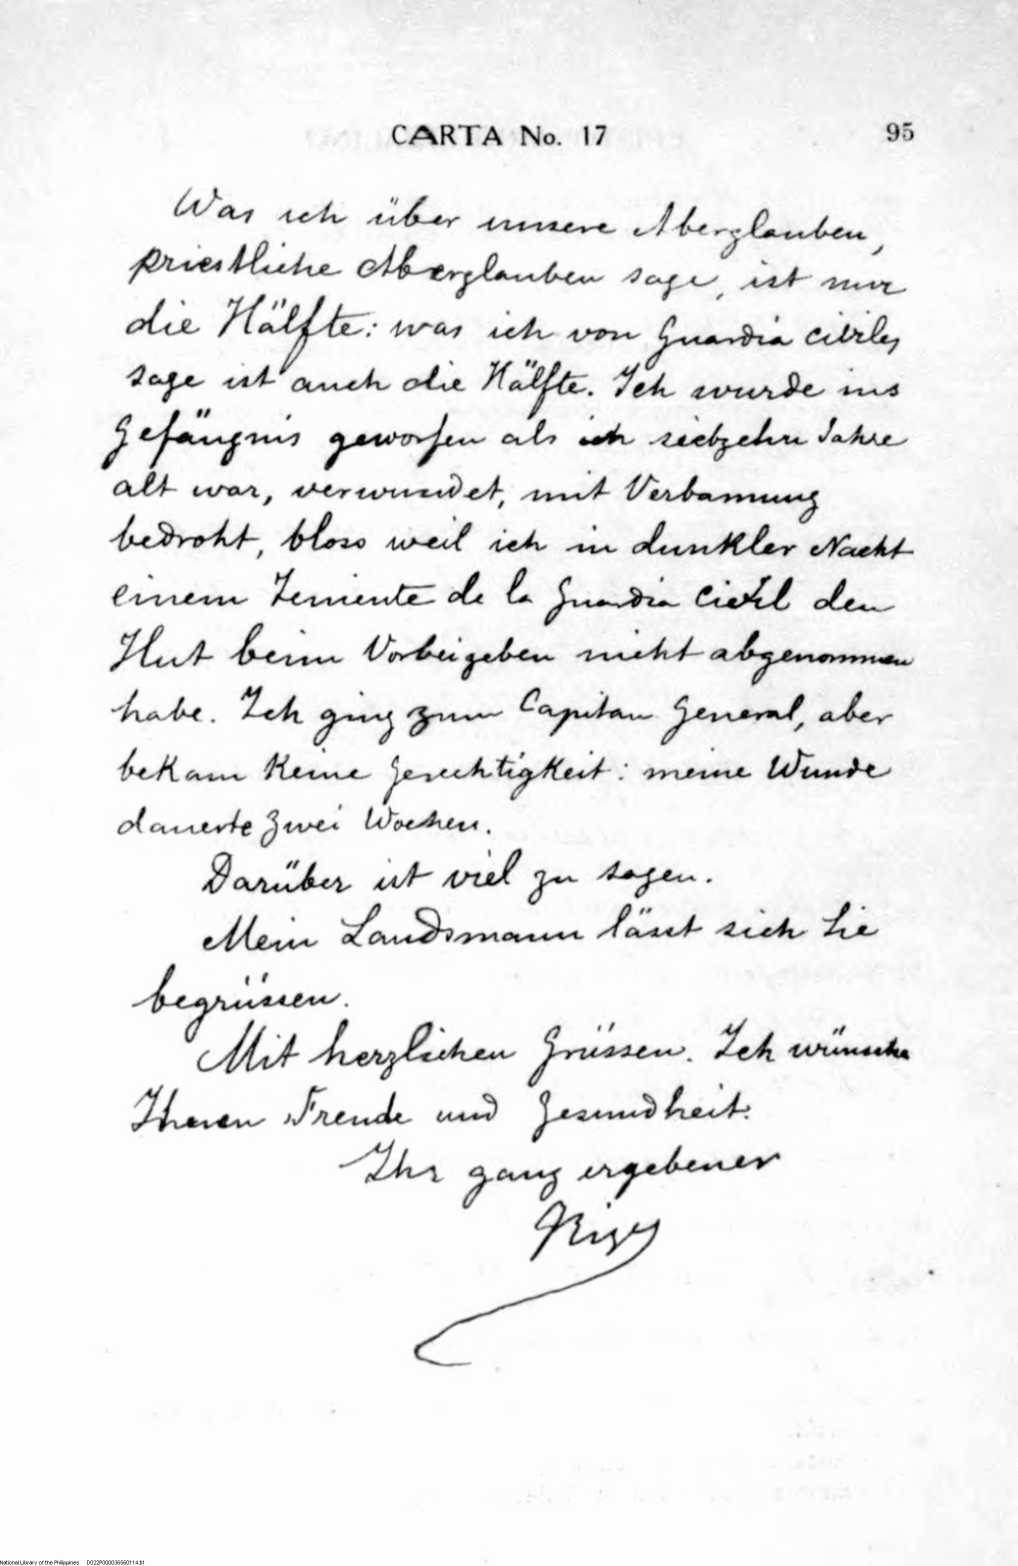 CARTA No. 17 95
Was ich über unsere Aberglauben,
priestliche Aberglauben sage, ist nur
die Hälfte: was ich von Guardia civiles
sage ist auch die Hälfte. Ich wurde ins
Gefängnis geworfen als ich siebzehn Jahre
alt war, verwundet, mit Verbannung
bedroht, bloss weil ich in dunkler Nacht
einem Teniente de la Guardia Civil den
Hut beim Vorbeigeben nicht abgenommen
habe. Ich ging zum Capitan General, aber
bekam keine Gerechtigkeit: meine Wunde
dauerte zwei Wochen.
Darüber ist viel zu sagen.
Mein Landsmann lässt sich Sie
begrüssen.
Mit herzlichen Grüssen. Ich wünsche
Ihenen Freude und Gesundheit.
Ihr ganz ergebener
Rizal
National Library of the Philippines